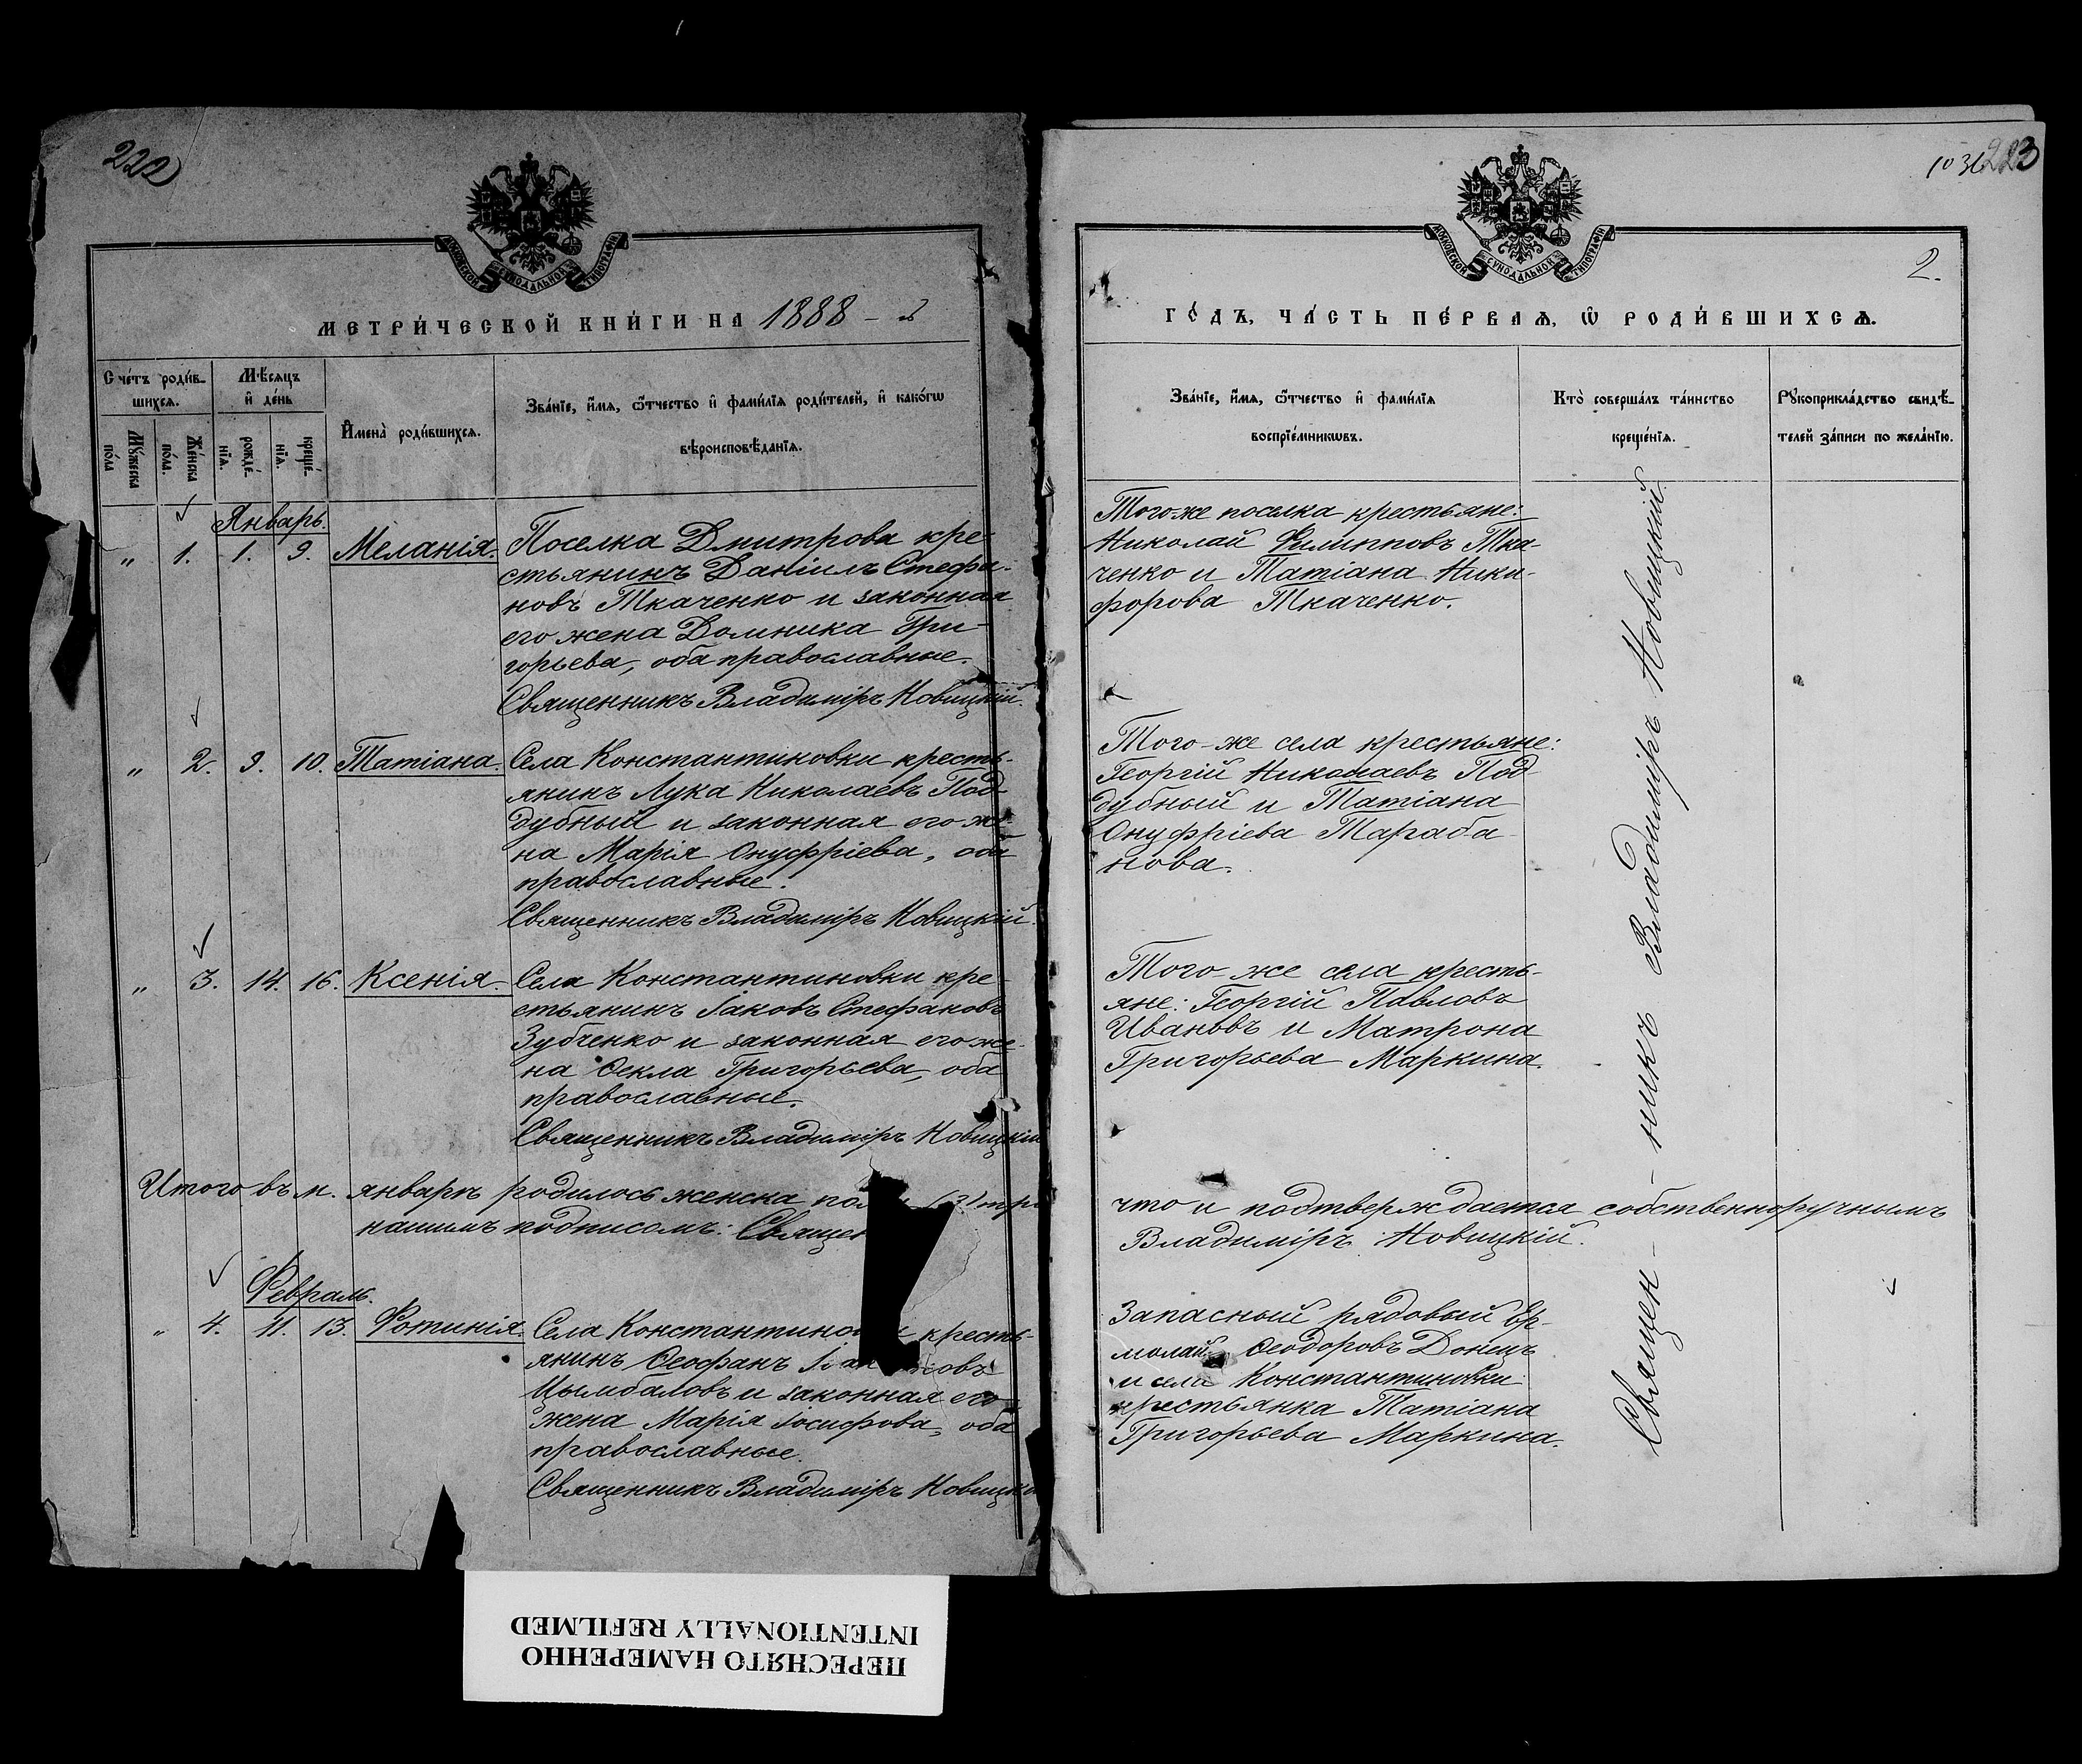 222
МОСКОВСКОЙ СУНОДАЛЬНОЙ ТИПОГРАФІИ
МЕТРИ́ЧЕСКОЙ КНИ́ГИ НА 1888 - й
Сче́тъ роди́в-
шихсѧ.
Мѣ́сѧцъ
и҆ де́нь
И҆мена̀ роди́вшихсѧ.
Зва́нїе, и҆́мѧ, ѻ҆́тчество и҆ фами́лїѧ роди́телей, и҆ како́гѡ
вѣроисповѣ́данїѧ.
Мꙋ́жеска
по́ла
Же́нска
по́ла.
рожде́-
нїѧ.
креще́-
нїѧ.
Январь.
„ 1. 1. 9. Меланія.
Поселка Дмитрова кре-
стьянинъ Даніилъ Стефа-
новъ Ткаченко и законная
его жена Домника Гри-
горьева, оба православные.
Священникъ Владиміръ Новицкій.
„ 2. 9. 10. Татіана.
Села Константиновки кресть-
янинъ Лука Николаевъ Под-
дубный и законная его же-
на Марія Онуфріева, оба
православные.
Священникъ Владиміръ Новицкій.
„ 3. 14. 16. Ксенія.
Села Константиновки кре-
стьянинъ Іаковъ Стефановъ
Зубченко и законная его же-
на Ѳекла Григорьева, оба
православные.
Священникъ Владиміръ Новицкій
Итого въ м. январѣ родилось женска пол (3) три
нашимъ подписомъ: Священ
Февраль.
„ 4. 11. 13. Фотинія.
Села Константино кресть-
янинъ Ѳеофанъ новъ
Цымбаловъ и законная его
жена Марія Іосифова, оба
православные.
Священникъ Владиміръ Новицкі
223
2.
МОСКОВСКОЙ СУНОДАЛЬНОЙ ТИПОГРАФІИ
ГО́ДЪ, ЧА́СТЬ ПЕ́РВАѦ, Ѡ҆ РОДИ́ВШИХСѦ.
Зва́нїе, и҆́мѧ, ѻ҆́тчество и҆ фами́лїѧ
воспрїе́мникѡвъ.
Кто̀ соверша́лъ та́инство
креще́нїѧ.
Рꙋкоприкла́дство свидѣ́-
телей за́писи по жела́нїю.
Того же поселка крестьяне:
Николай Филипповъ Тка-
ченко и Татіана Ники-
форова Ткаченко.
Того-же села крестьяне:
Георгій Николаевъ Под-
дубный и Татіана
Онуфріева Тараба-
нова.
Того-же села кресть-
яне: Георгій Павловъ
Ивановъ и Матрона
Григорьева Маркина.
что и подтверждается собственноручнымъ
Владиміръ Новицкій.
Запасный рядовый Ер-
молай Ѳеодоровъ Донецъ
и села Константиновки
крестьянка Татіана
Григорьева Маркина.
Священ-никъ Владиміръ Новицкій
ПЕРЕСНЯТО НАМЕРЕННО
INTENTIONALLY REFILMED